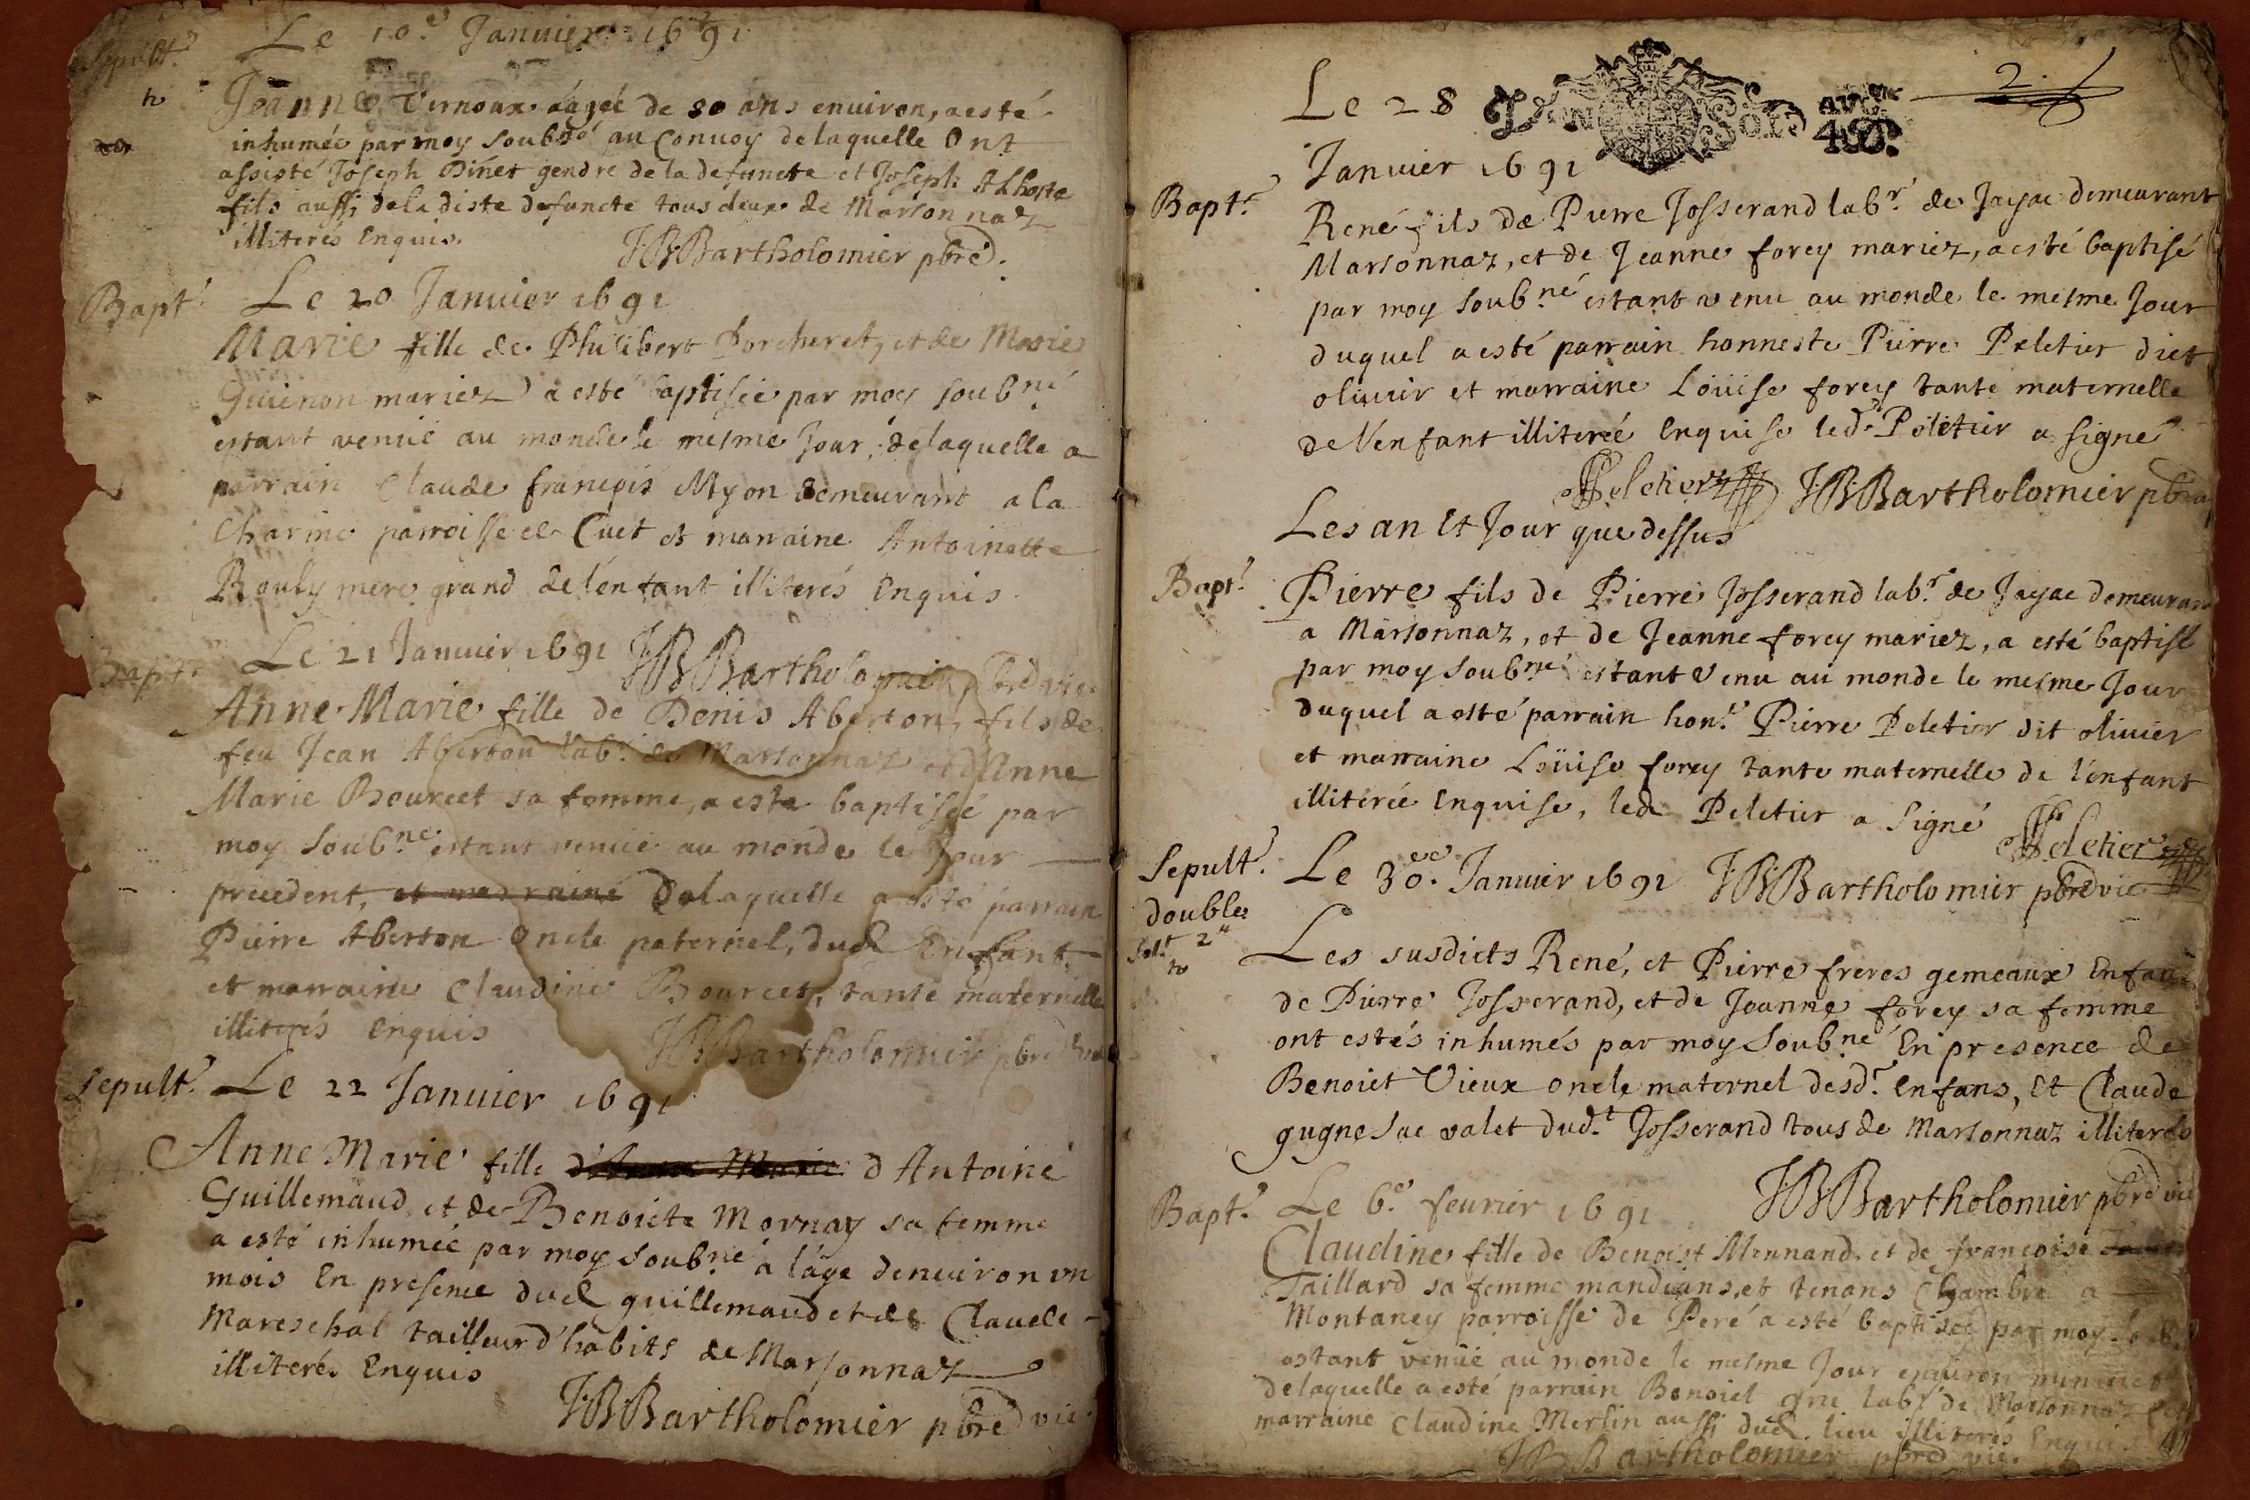 Le 10.e Januier 1691
Sepult.e
Jeanne Vernoux aagée de 80 ans enuiron, a esté
inhumée par moy soubné au Conuoy delaquelle Ont
assisté Joseph Dinet gendre de la defuncte et Joseph Alhoste
fils aussi dela diste defuncte tous deux de Marsonnaz
illiterés Enquis.
JBBartholomier pbre
Bapt.
Le 20 Januier 1691
Marie fille de Philibert Porcheret, et de Marie
Guienon mariez a esté baptisée par moy soubné
estant venüe au monde le mesme Jour, delaquelle a
parrain Claude françois Myon demeurant a la
Charme parroisse de Cuet et marraine Antoinette
Bouly mere grand de l'enfant illiterés Enquis
Bapt.
Le 21 Januier 1691 JBBartholomier pbre vic.
Anne Marie fille de Denis Aberton, fils de
feu Jean Aberton lab.r de Marsonnaz et d'Anne
Marie Bourcet sa femme, a esté baptisée par
moy soub.né estant venüe au monde le Jour
precedent, et marraine Delaquelle a esté parrain
Pierre Aberton Oncle paternel, dud. Enfant,
et marraine Claudine Bourcet, tante maternelle
illiterés Enquis
JBBartholomier pbre vic.
Sepult.e
Le 22 Januier 1691
Anne Marie fille d'Anne Marie d Antoine
Guillemaud, et de Benoicte Mornay sa femme
a esté inhumée par moy soub.né a l'âge denuiron vn
mois En presence dud. guillemaud et de Claude
Mareschal tailleur d'habits de Marsonnaz
illiterés Enquis
JBBartholomier pbre vic.
2.
Le 28
Januier 1691
Bapt.e
René fils de Pierre Josserand lab.r de Jayac demeurant
Marsonnaz, et de Jeanne forey mariez, a esté baptisé
par moy soub.né estant venu au monde le mesme Jour
duquel a esté parrain honneste Pierre Peletier dict
oliuier et marraine Loüise forey tante maternelle
de l'enfant illiterée Enquise led. Peletier a signé
Peletier JBBartholomier pbre
Les an Et Jour que dessus
Bapt.e
Pierre fils de Pierre Josserand lab.r de Jayac demeurant
a Marsonnaz, et de Jeanne forey mariez, a esté baptisé
par moy soub.né estant venu au monde le mesme Jour
duquel a esté parrain hon.e Pierre Peletier dit oliuier
et marraine Loüise forey tante maternelle de l'enfant
illiterée Enquise, led. Peletier a signé
Peletier
Sepult.e
double
Le 30.e Januier 1691 JBBartholomier pbre vic
Les susdicts René, et Pierre freres gemeaux Enfans
de Pierre Josserand, et de Jeanne forey sa femme
ont estés inhumés par moy soub.né En presence de
Benoict Vieux oncle maternel desd. Enfans, Et Claude
gugne sac valet dud.t Josserand tous de Marsonnaz illiterés
JBBartholomier pbre vic
Bapt.e
Le 6.e feurier 1691
Claudine fille de Benoist Mennand, et de françoise
Taillard sa femme mandians, et tenans Chambre a
Montaney parroisse de Peré a esté baptisée par moy
estant venüe au monde le mesme Jour enuiron minuict
delaquelle a esté parrain Benoict lab.r de Marsonnaz
marraine Claudine Merlin aussi dud. lieu illiterés Enquis
JBBartholomier pbre vic.